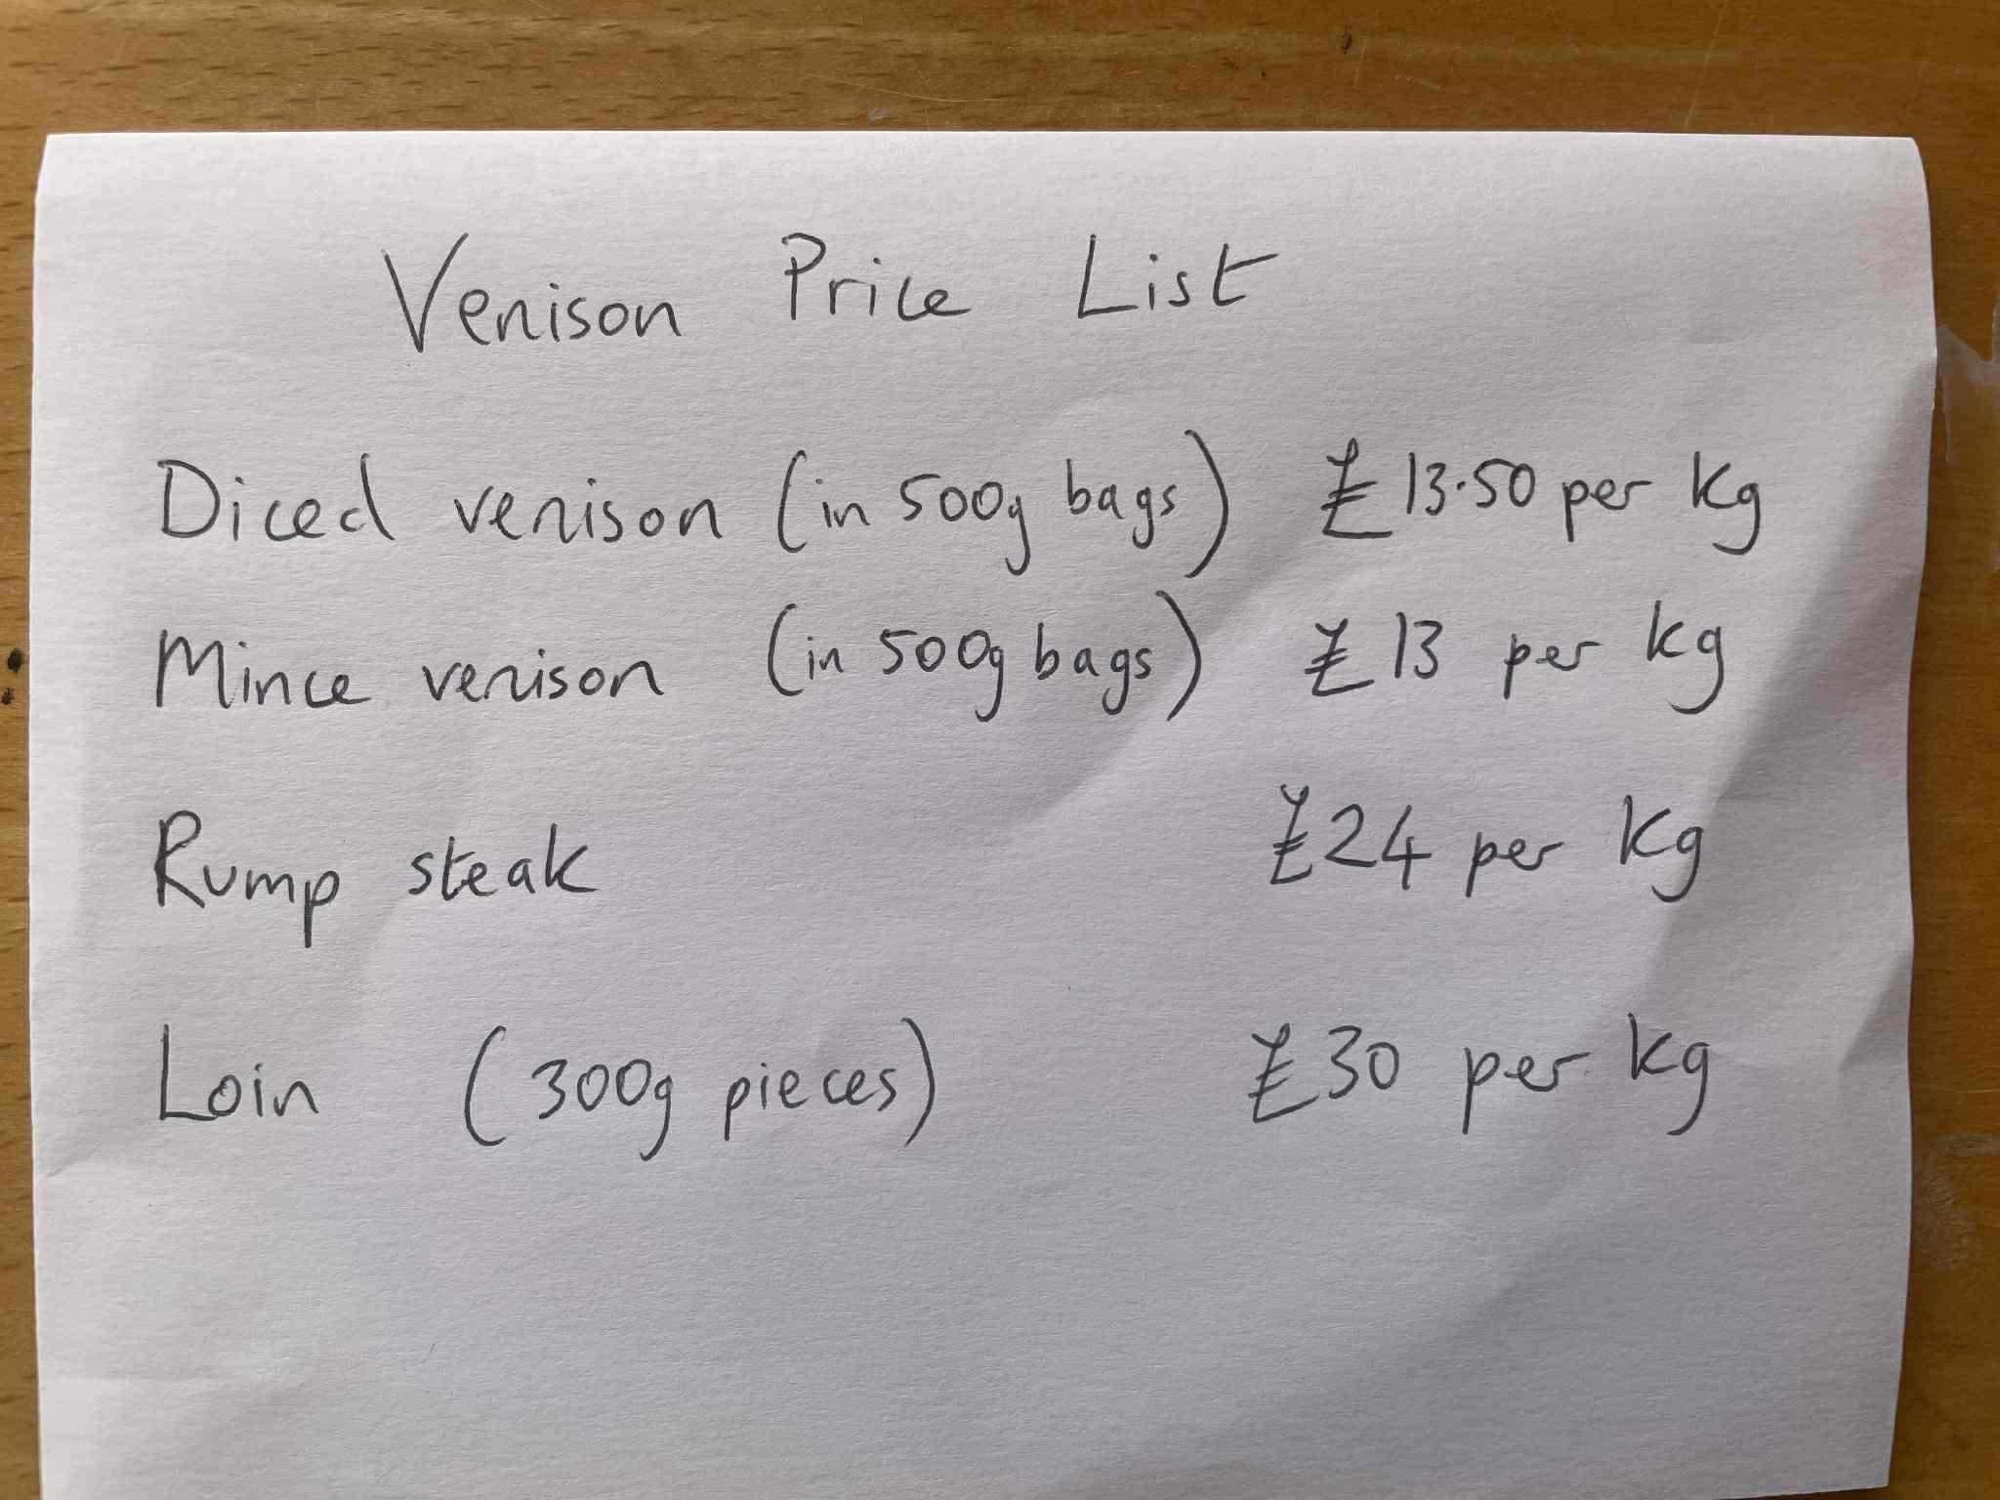 Venison Price List
Diced venison (in 500g bags) £13.50 per kg
Mince venison (in 500g bags) £13 per kg
Rump steak £24 per kg
Loin (300g pieces) £30 per kg